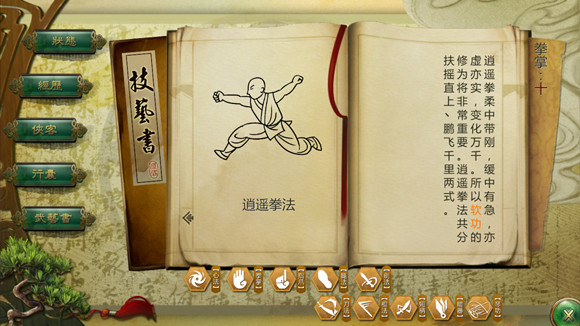 狀態
經歷
俠客
行囊
武藝書
技藝書
逍遥拳法
拳掌：十
逍遥拳柔中带刚，缓中有急，亦
虚亦实，变化万千。所以软功的
修为将非常重要。逍遥拳法共分
扶摇直上、鹏飞千里两式。